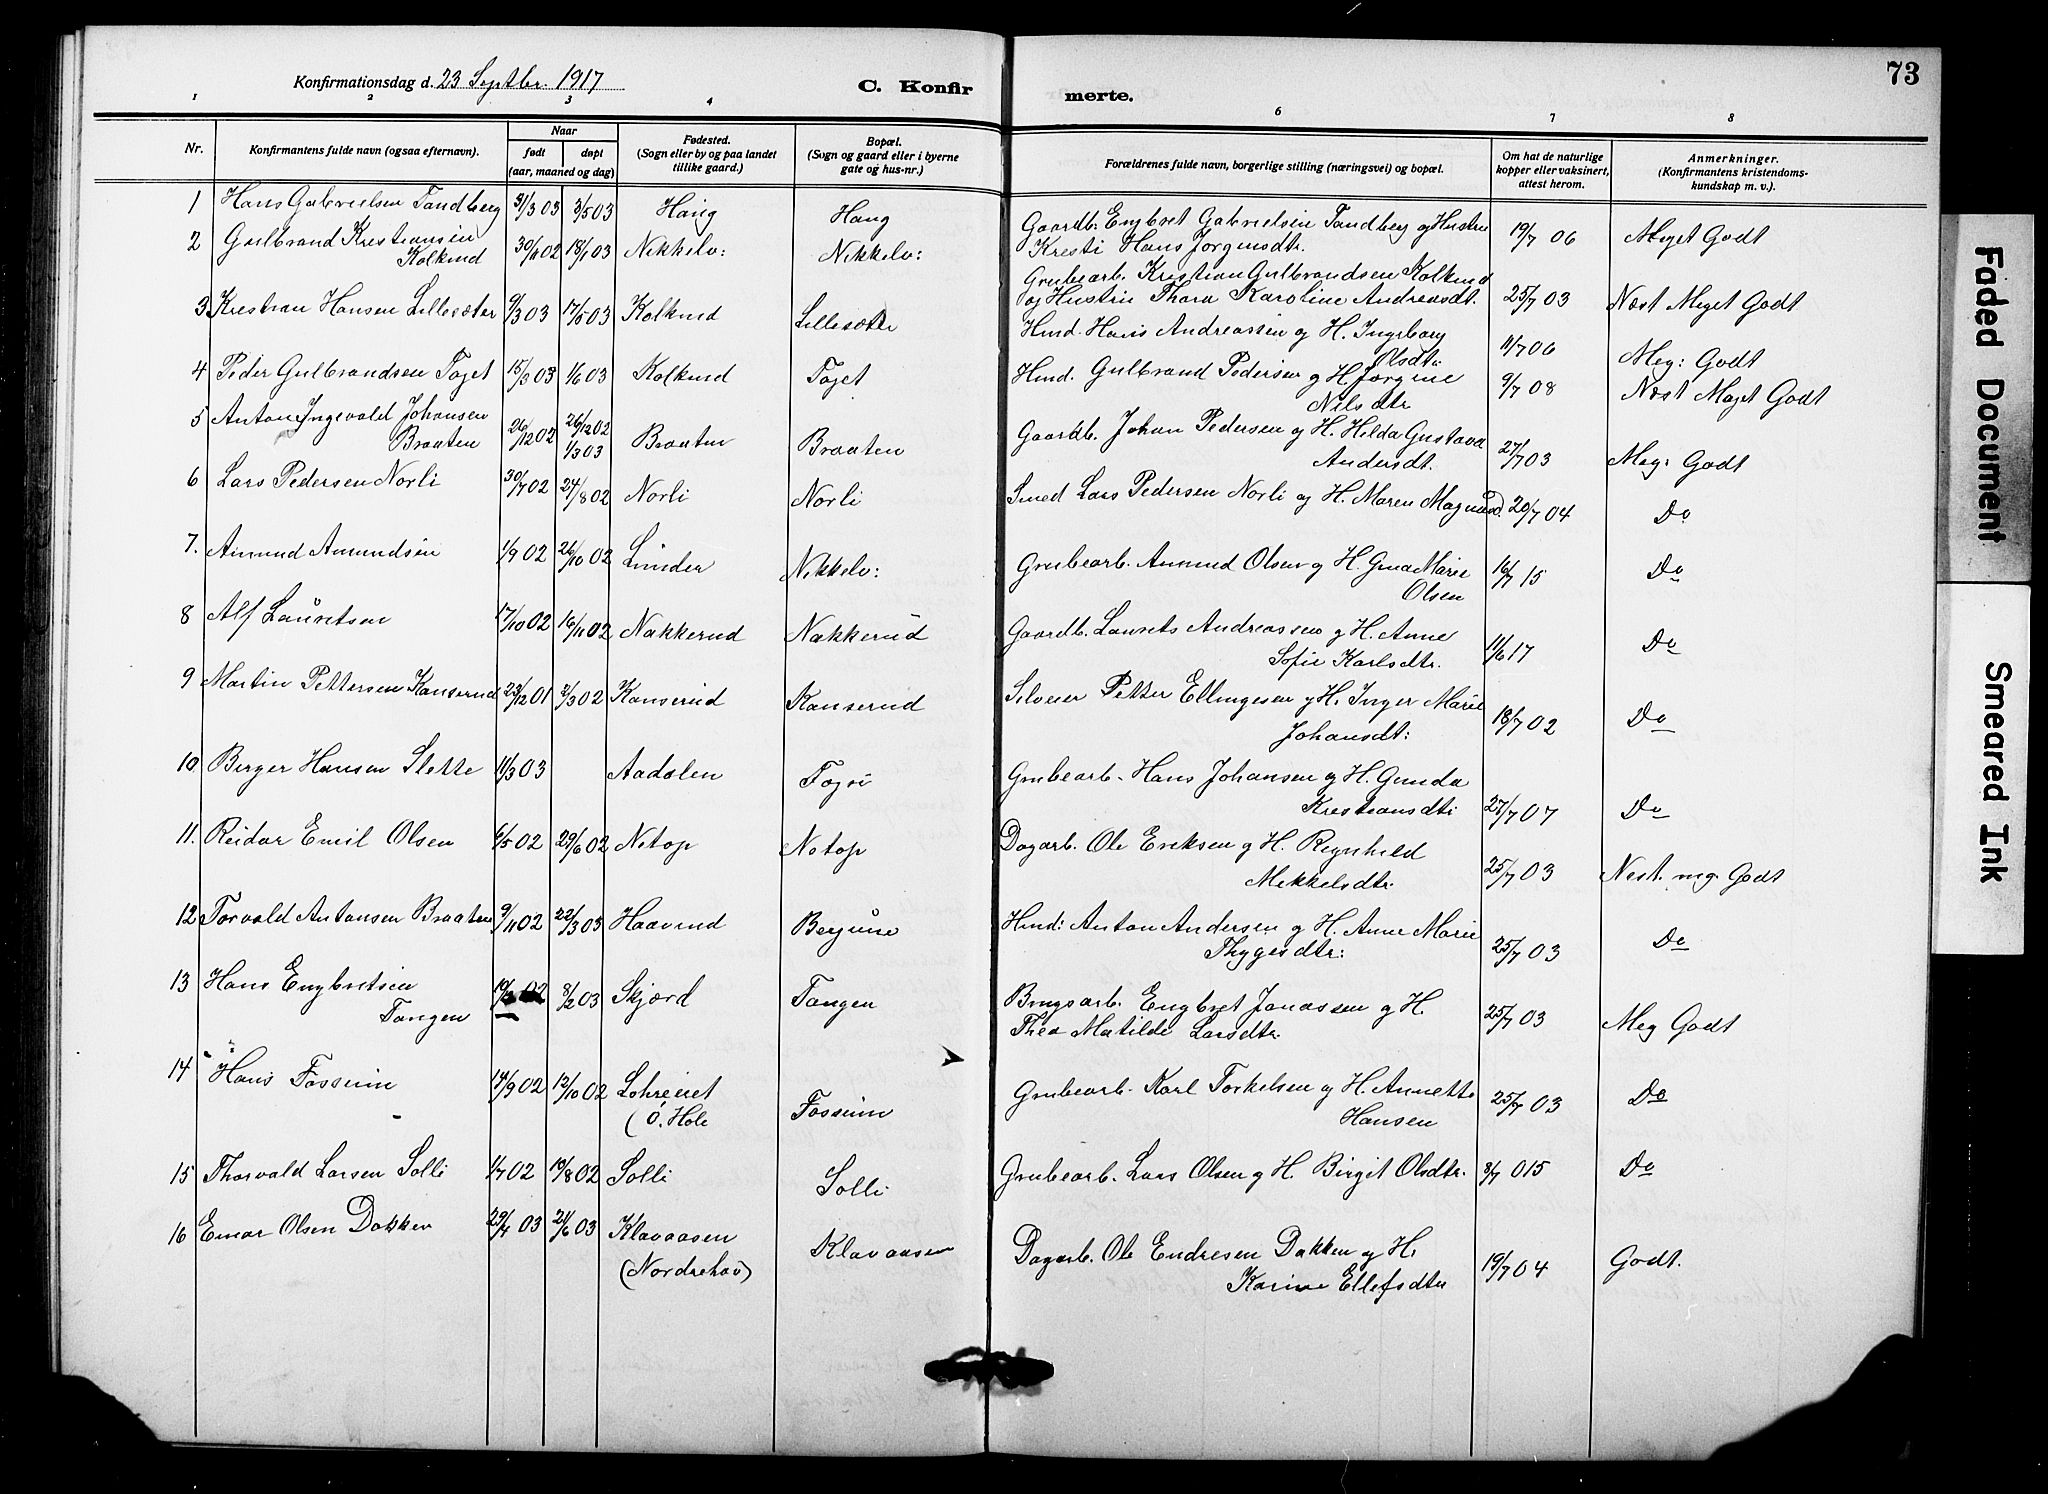 Konfirmationsdag d. 23 Septbr. 1917
C. Konfirmerte.
73
1 2 3 4 6 7 8
Nr. Konfirmantens fulde navn (ogsaa efternavn). Naar født døpt (aar, maaned og dag) Fødested. (Sogn eller by og paa landet tillike gaard.) Bopæl. (Sogn og gaard eller i byerne gate og hus-nr.) Forældrenes fulde navn, borgerlige stilling (næringsvei) og bopæl. Om hat de naturlige kopper eller vaksinert, attest herom. Anmerkninger. (Konfirmantens kristendomskundskap m. v.).
1 Hans Gabrielsen Tandberg 31/3 03 3/5 03 Haug Haug Gaardb. Engbret Gabrielsen Tandberg og Hustru Kresti Hans Jørgensdtr. 19/7 06 Meget Godt
2 Gulbrand Kristiansen Kolkind 30/11 02 18/1 03 Nikkelv: Nikkelv: Grubearb. Kristian Gulbrandsen Kolkind og Hustru Thora Karoline Andreasdt. 25/7 03 Næst Meget Godt
3 Kristian Hansen Lillesæter 9/3 03 17/5 03 Kolkind Lillesæter Hmd. Hans Andreassen og H. Ingeborg Olsdtr 11/7 06 Meg: Godt
4 Peder Gulbrandsen Taget 15/3 03 1/6 03 Kolkind Taget Hmd. Gulbrand Pedersen og H Jørgine Nilsdtr 9/7 08 Næst Meget Godt
5 Anton Ingevald Johansen Braaten 26/12 02 26/12 02 1/3 03 Braaten Braaten Gaardb. Johan Pedersen og H. Hilda Gustava Andersdt. 27/7 03 Meg: Godt
6 Lars Pedersen Norli 30/7 02 24/8 02 Norli Norli Smed Lars Pedersen Norli og H. Maren Magnusd. 20/7 04 Do
7. Amund Amundsen 1/9 02 26/10 02 Linder Nikkelv: Grubearb. Amund Olsen og H. Gina Marie Olsen 16/7 15 Do
8 Alf Lauretsen 17/10 02 16/11 02 Nakkerud Nakkerud Gaardb. Laurets Andreassen og H. Anne Sofie Karlsdtr. 11/6 17 Do
9 Martin Pettersen Kanserud 23/12 01 2/3 02 Kanserud Kanserud Petter Ellingesen og H. Inger Marie Johansdt: 18/7 02 Do
10 Birger Hansen Slette 11/3 03 Aadalen Grubearb. Hans Johansen og H. Gunda Krestiansdt: 27/7 07 Do
11. Reidar Emil Olsen 6/5 02 29/6 02 Netop Netop Dagarb. Ole Eriksen og H. Regnhild Mekkelsdtr. 25/7 03 Nest. meg. Godt
12 Torvald Antonsen Braaten 9/11 02 22/3 03 Haavind Hmd: Anton Andersen og H. Anne Marie Thygesdtr: 25/7 03 Do
13 Hans Engbretsen Tangen 8/2 03 Skjærd Tangen Brugsarb. Engbret Jonassen og H. Thea Matilde Larsdtr. 25/7 03 Meg Godt
14 Hans Fossum 14/9 02 12/10 02 (ö. Hole Fossum Grubearb. Karl Torkelsen og H. Annette Hansen 25/7 03 Do
15 Thorvald Larsen Solli 1/7 02 19/8 02 Solli Solli Grubearb. Lars Olsen og H. Birgit Olsdtr. 8/7 015 Do
16 Einar Olsen Dokken 29/4 03 21/6 03 Klavaasen (Nordrehov) Klavaasen Dagarb. Ole Endresen Dokken og H. Karine Ellefsdtr 19/7 04 Godt.
Faded Document
Smeared Ink